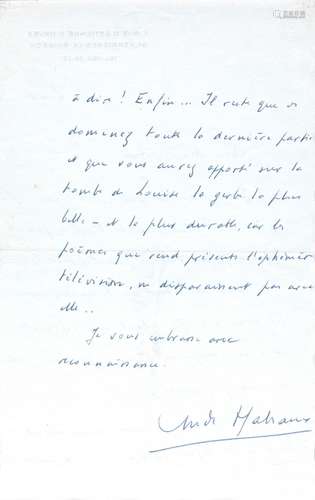 à dire ! Enfin... Il reste que vous
dominez toute la dernière partie
et que vous aurez apporté sur la
tombe de Louise la gerbe la plus
belle — et la plus durable, car les
poèmes que rend présents l'éphémère
télévision, ne disparaissent pas avec
elle..
Je vous embrasse avec
reconnaissance.
André Malraux